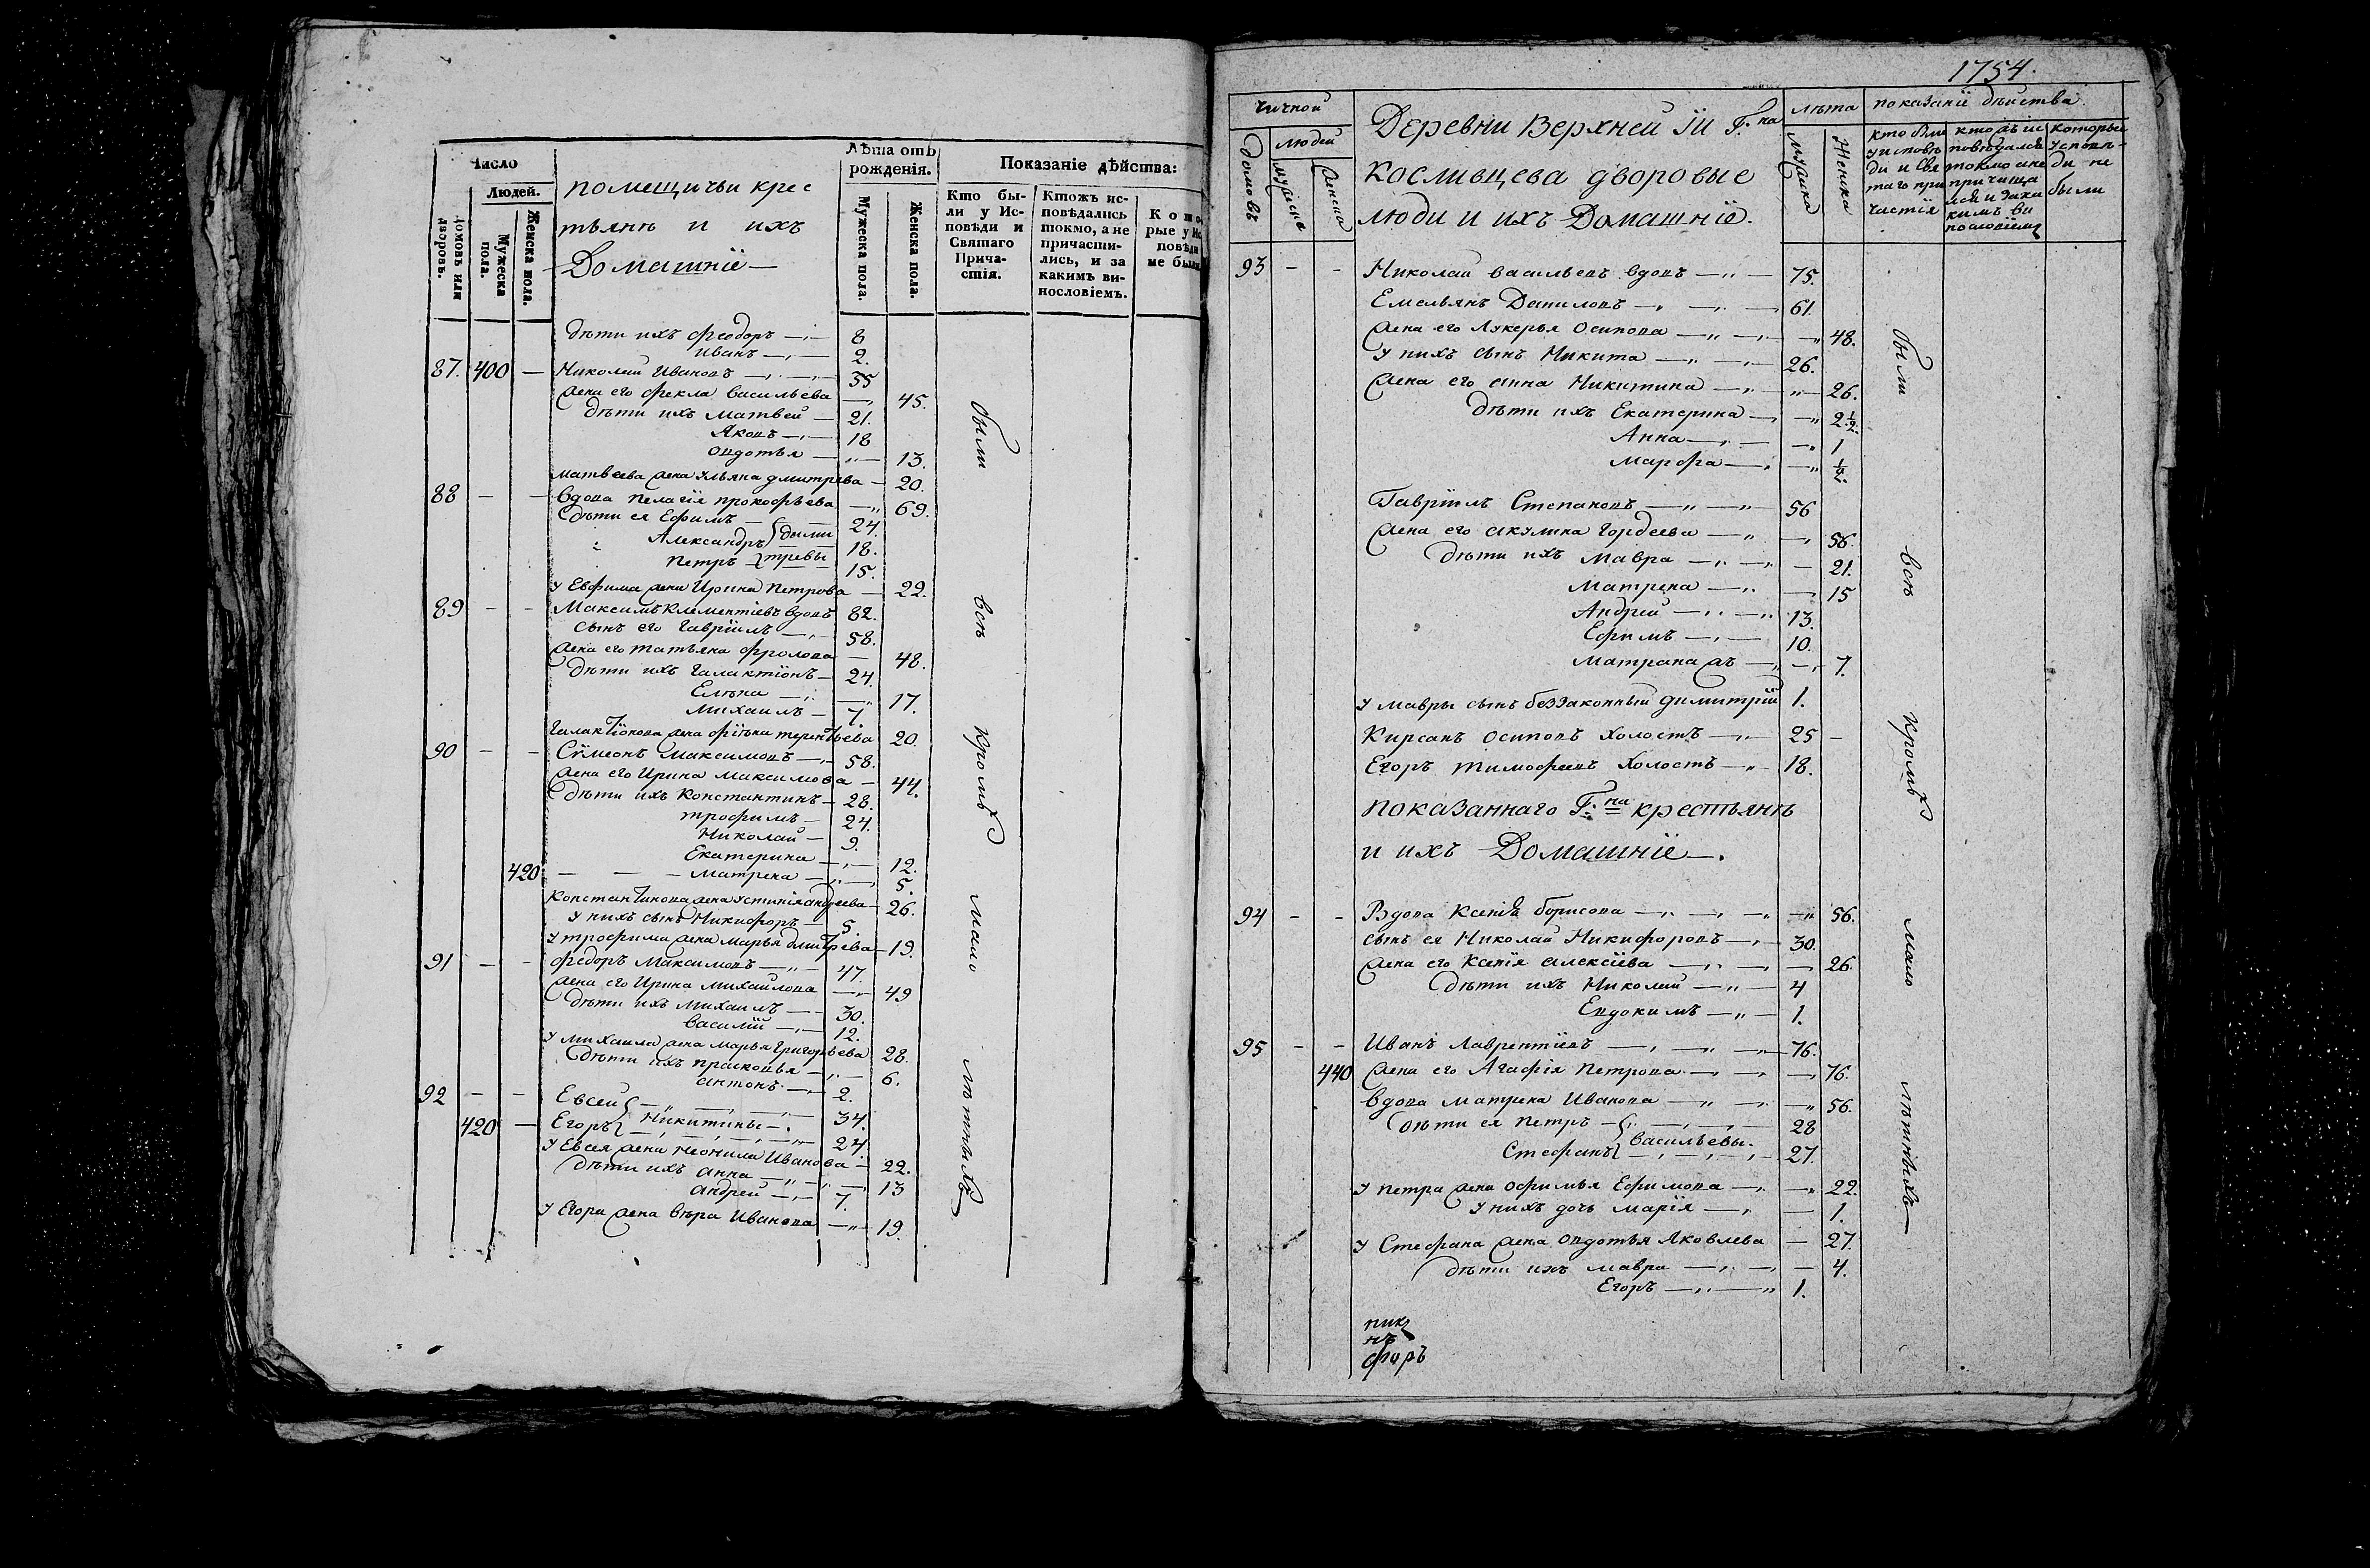 Число
Людей.
Домовъ или дворовъ.
Мужеска пола.
Женска пола.
помещичьи крес
тьянъ и ихъ
Домашніе
Лѣта отъ рожденія.
Мужеска пола.
Женска пола.
Показаніе дѣйства:
Кто бы-
ли у Ис-
повѣди и
Святаго
Прича-
стія.
Ктожъ ис-
повѣдались
токмо, а не
причасти-
лись, и за
какимъ ви-
нословіемъ.
Кото-
рые у Ис
повѣди
не были
дѣти ихъ Феодоръ 8
Иванъ 2.
87. 400 Николай Ивановъ 55
жена его Фекла Васильева 45.
дѣти ихъ Матвей 21.
Яковъ 18
Овдотья 13.
Матвеева жена Ульяна Дмитрева 20.
88 вдова Пелагія Прокофьева 69.
дѣти ея Ефимъ 24.
Александръ 18.
Петръ 15.
У Евфима жена Ирина Петрова 22.
89 Максимъ Клементіевъ вдовъ 82.
сынъ его Гаврїилъ 58.
жена его Татьяна Фролова 48.
дѣти ихъ Галактіонъ 24.
Елѣна 17.
Михаилъ 7.
Галактіонова жена Фіѣна Терентьева 20.
90 Сѵмеонъ Максимовъ 58.
жена его Ирина Максимова 44.
дѣти ихъ Константинъ 28.
Трофимъ 24.
Николай 9.
Екатерина 12.
420 Матрена 5.
Константинова жена Устинія Андреева 26.
у нихъ сынъ Никифоръ 5.
у Трофима жена Марья Дмитрева 19.
91 Федоръ Максимовъ 47.
жена его Ирина Михайлова 49
дѣти ихъ Михаилъ 30.
Василій 12.
у Михаила жена Марья Григорьева 28.
дѣти ихъ Прасковья 6.
Антонъ 2.
92 Евсей Никитины 34.
420 Егоръ 24.
У Евсея жена Неонила Иванова 22.
дѣти ихъ Анна 13
Андрей 7.
У Егора жена Вѣра Иванова 19.
были всѣ кромѣ мало лѣтныхъ
1754.
числой
домовъ
людей
мужска
женска
Деревни Верхней Іи Г:на
Косливцева дворовые
люди и ихъ Домашніе.
лѣта
мужска
женска
показаніе дѣйства.
кто были
у исповѣ
ди и свя
таго при
частія
кто жъ ис
повѣдался
токмо а не
причаща
лся и зака
кимъ ви
нословіемъ
которые
у исповѣ-
ди не
были
93 Николай Васильевъ вдовъ 75.
Емельянъ Даниловъ 61.
жена его Лукерья Осипова 48.
у нихъ сынъ Никита 26.
жена его Анна Никитина 26.
дѣти ихъ Екатерина 2 1/2.
Анна 1
Марфа
Гаврїилъ Степановъ 56
жена его Акулина Гордеева 56.
дѣти ихъ Мавра 21.
Матрена 15
Андрей 13.
Ефимъ 10.
Матрана жъ 7.
у Мавры сынъ беззаконный Димитрій 1.
Кирсанъ Осиповъ холостъ 25
Егоръ Тимофеевъ холостъ 18.
показаннаго Г:на крестьянъ
и ихъ Домашніе.
94 Вдова Ксенія Борисова 56.
сынъ ея Николай Никифоровъ 30.
жена его Ксенія Алексіева 26.
дѣти ихъ Николай 4
Евдокимъ 1.
95 Иванъ Лаврентіевъ 76.
440 жена его Агафія Петрова 76.
вдова Матрена Иванова 56.
дѣти ея Петръ 28
Васильевы.
Стефанъ 27.
у Петра жена Офимья Ефимова 22.
у нихъ дочь Марія 1.
у Стефана жена Овдотья Яковлева 27.
дѣти ихъ Мавра 4.
Егоръ 1.
были всѣ кромѣ мало лѣтныхъ